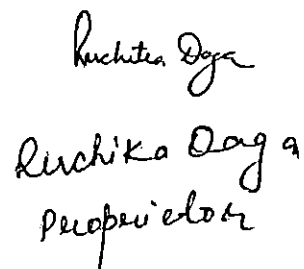 Ruchika Daga
Ruchika Daga
Proprietor